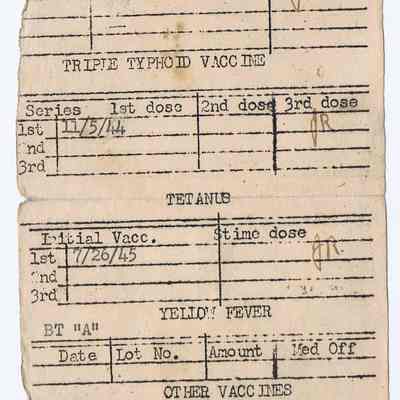 TRIPLE TYPHOID VACCINE
Series 1st dose 2nd dose 3rd dose
1st 11/5/44 JR
2nd
3rd
TETANUS
Initial Vacc. Stimc dose
1st 7/26/45 JR
2nd
3rd
YELLOW FEVER
BT "A"
Date Lot No. Amount Med Off
OTHER VACCINES